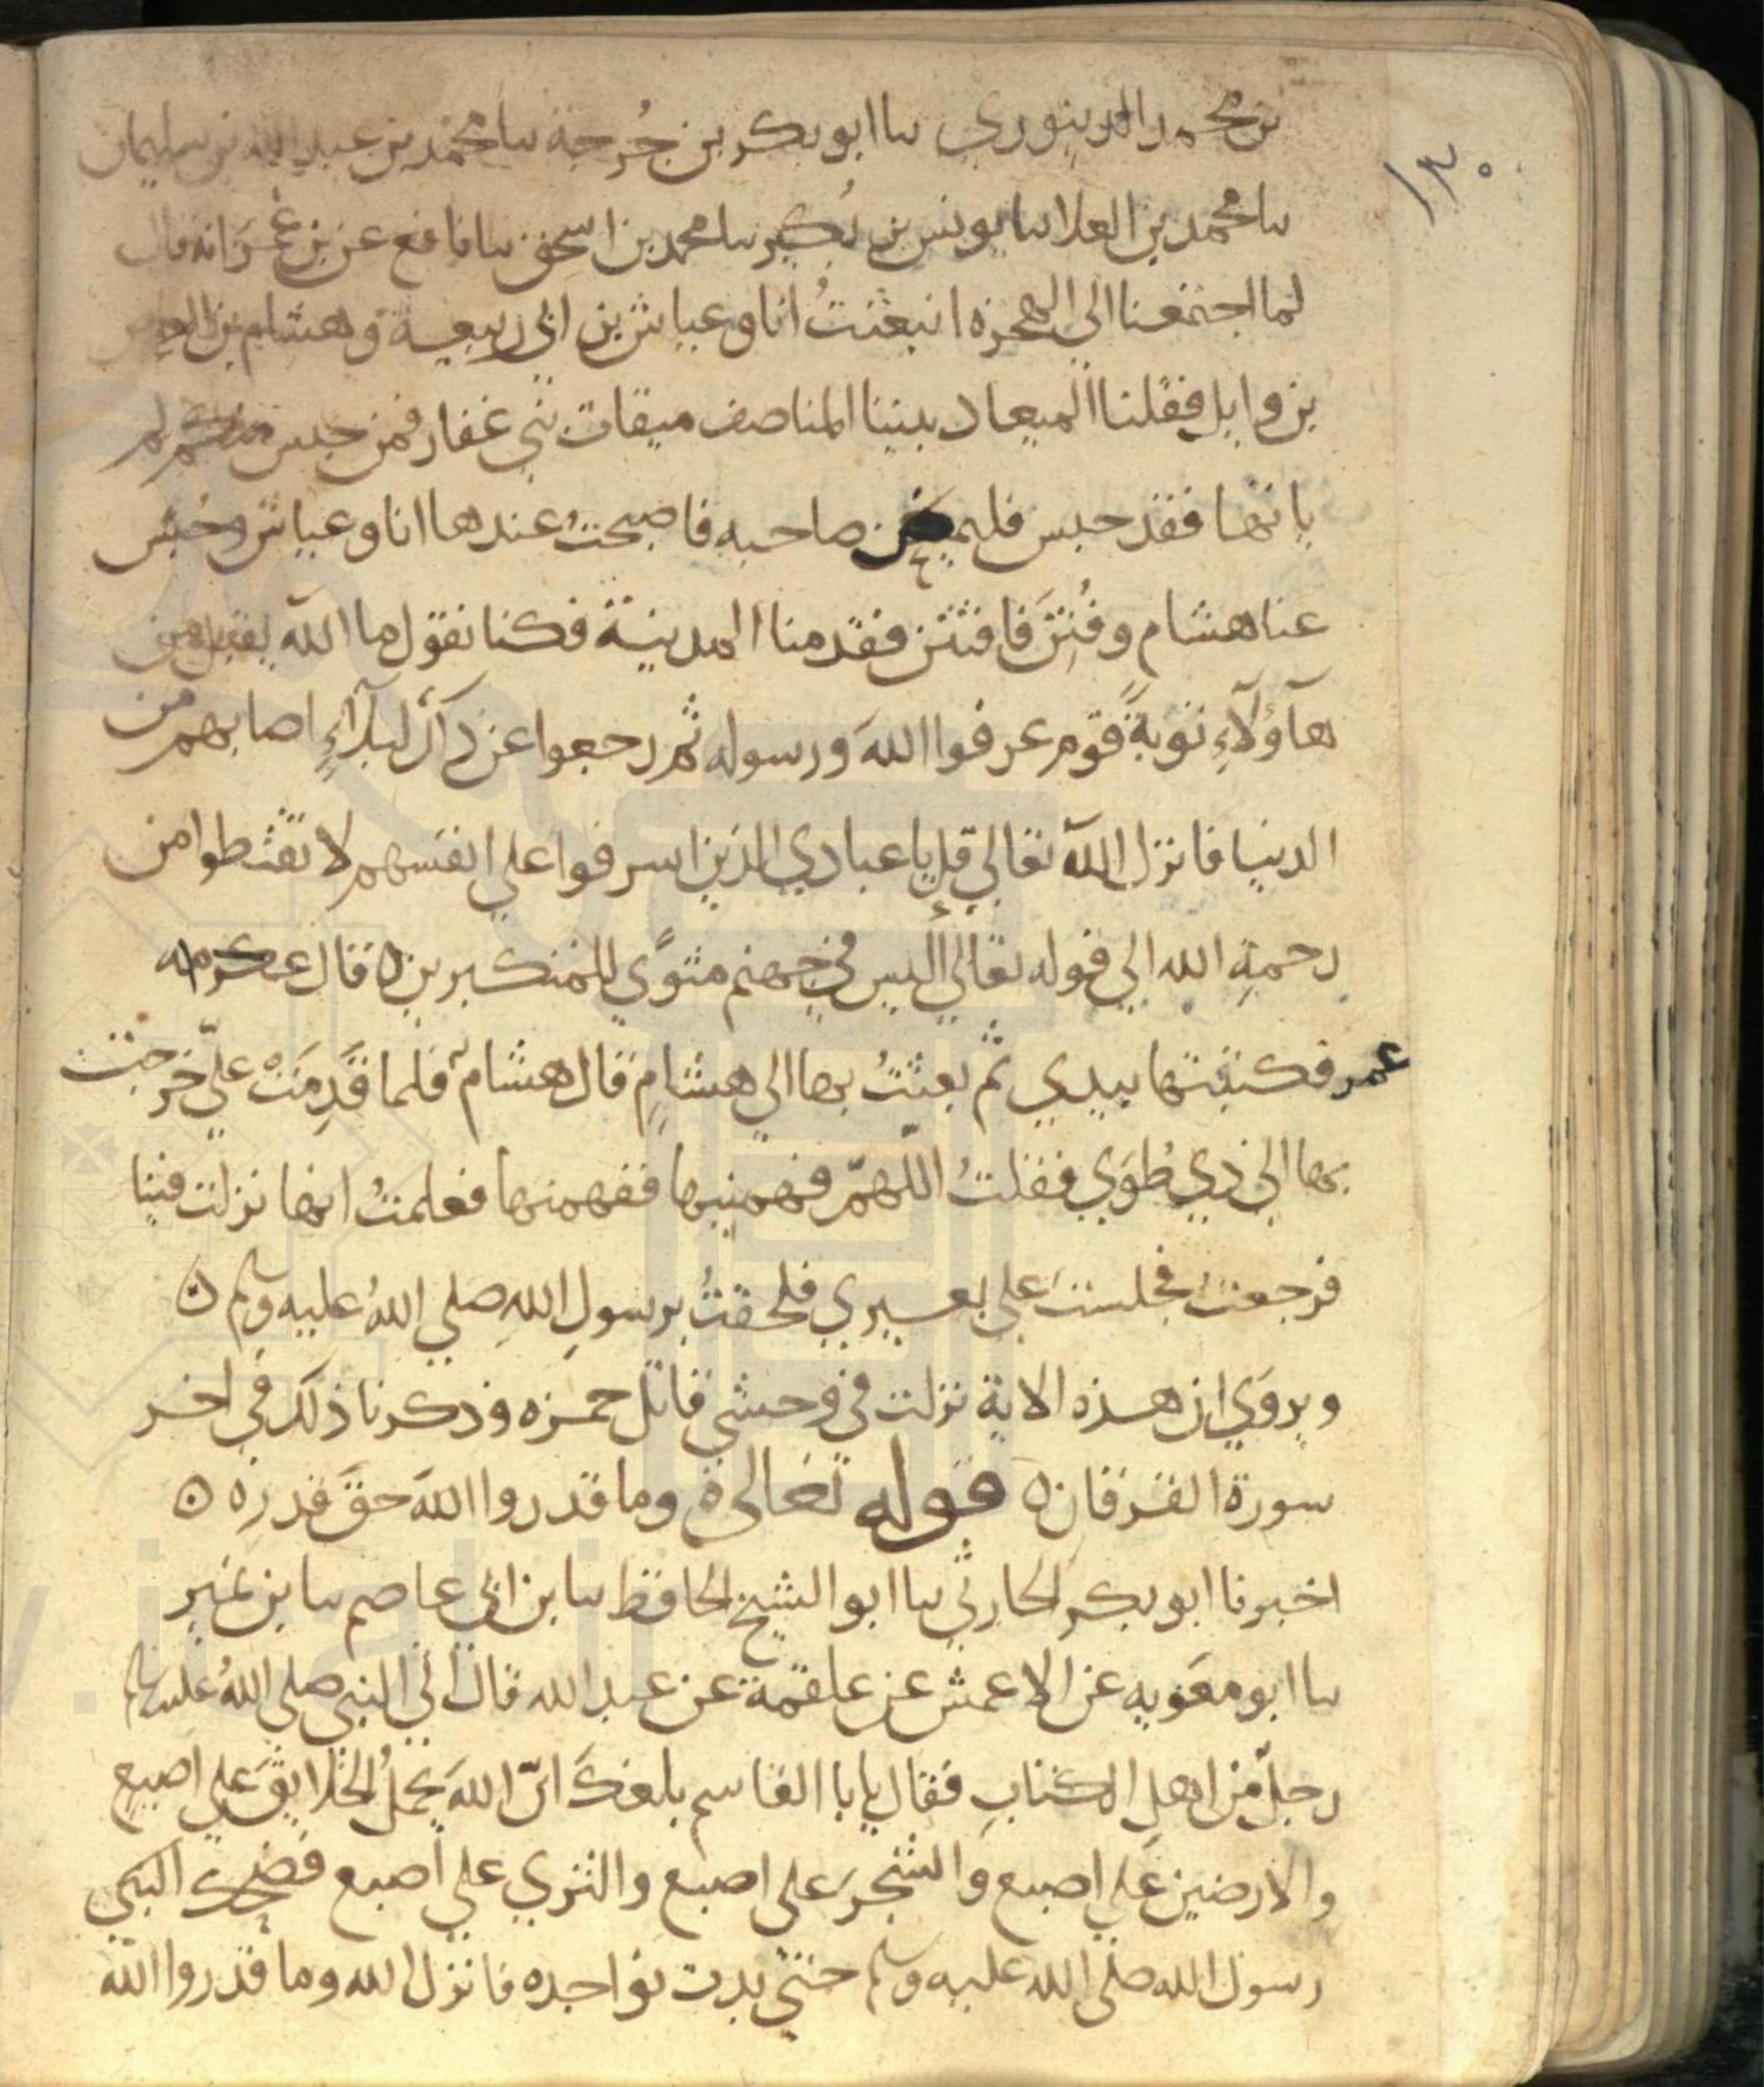 ١٣٠
بن محمد الدينوري سا ابو بكر بن جُرجة سا محمد بن عبد الله بن سليمان
سا محمد بن العلا سا يونس بن بُكير سا محمد بن اسحق سا نافع عن بن عُمَرَ انه قال
لما اجتمعنا الي الهجرة انبعثتُ انا وعياش بن ابي ربيعة وهشام بن العاص
بن وايل فقلنا الميعاد بيننا المناصف ميقات بني غفار فمن حبس منكم لم
ياتها فقد حبس فليمض صاحبه فاصبحتُ عندها انا وعياش وحُبس
عنا هشام وفُتِنَ فافتتن فقدمنا المدينة فكنا نقول ما الله يقبل من
هآؤلآءِ توبةً قوم عرفوا اللهَ ورسوله ثم رجعوا عن ذلك لبلآءٍ اصابهم من
الدنيا فانزل الله تعالي قل يا عبادي الذين اسرفوا علي انفسهم لا تقنطوا من
رحمةِ الله الي قوله تعالي أليس في جهنم مثوًي للمتكبرين ٥ قال
عمر فكتبتها بيدي ثم بعثتُ بها الي هشامٍ قال هشام فلما قَدِمَتْ عليّ خرجت
بها الي ذي طُوَي فقلتُ اللّهمّ فهمنيها ففهمتها فعلمتُ انها نزلت فينا
فرجعتُ فجلستُ علي بعيري فلحقتُ برسولِ اللهِ صلي اللهُ عليه وسلم ٥
ويروَي ان هذه الاية نزلت في وحشي قاتل حمزه وذكرنا ذلك في اخر
سورة الفرقان ٥ قوله تعالي ٥ وما قدروا اللهَ حقَّ قدرِه ٥
اخبرنا ابو بكر الحارثي سا ابو الشيخ الحافظ سا بن ابي عاصم سا بن نمير
سا ابو معَويه عن الاعمش عن علقمة عن عبد الله قال أتي النبي صلي اللهُ عليه وسلم
رجلٌ من اهلِ الكتابِ فقال يا با القاسم بلغكَ انّ اللهَ يحملُ الخلايقَ علي اصبعٍ
والارضين علي اصبع والشجرَ علي اصبع والثري علي اصبع فضحك النبي
رسول الله صلي الله عليه وسلم حتي بدت نواجده فانزل الله وما قدروا الله